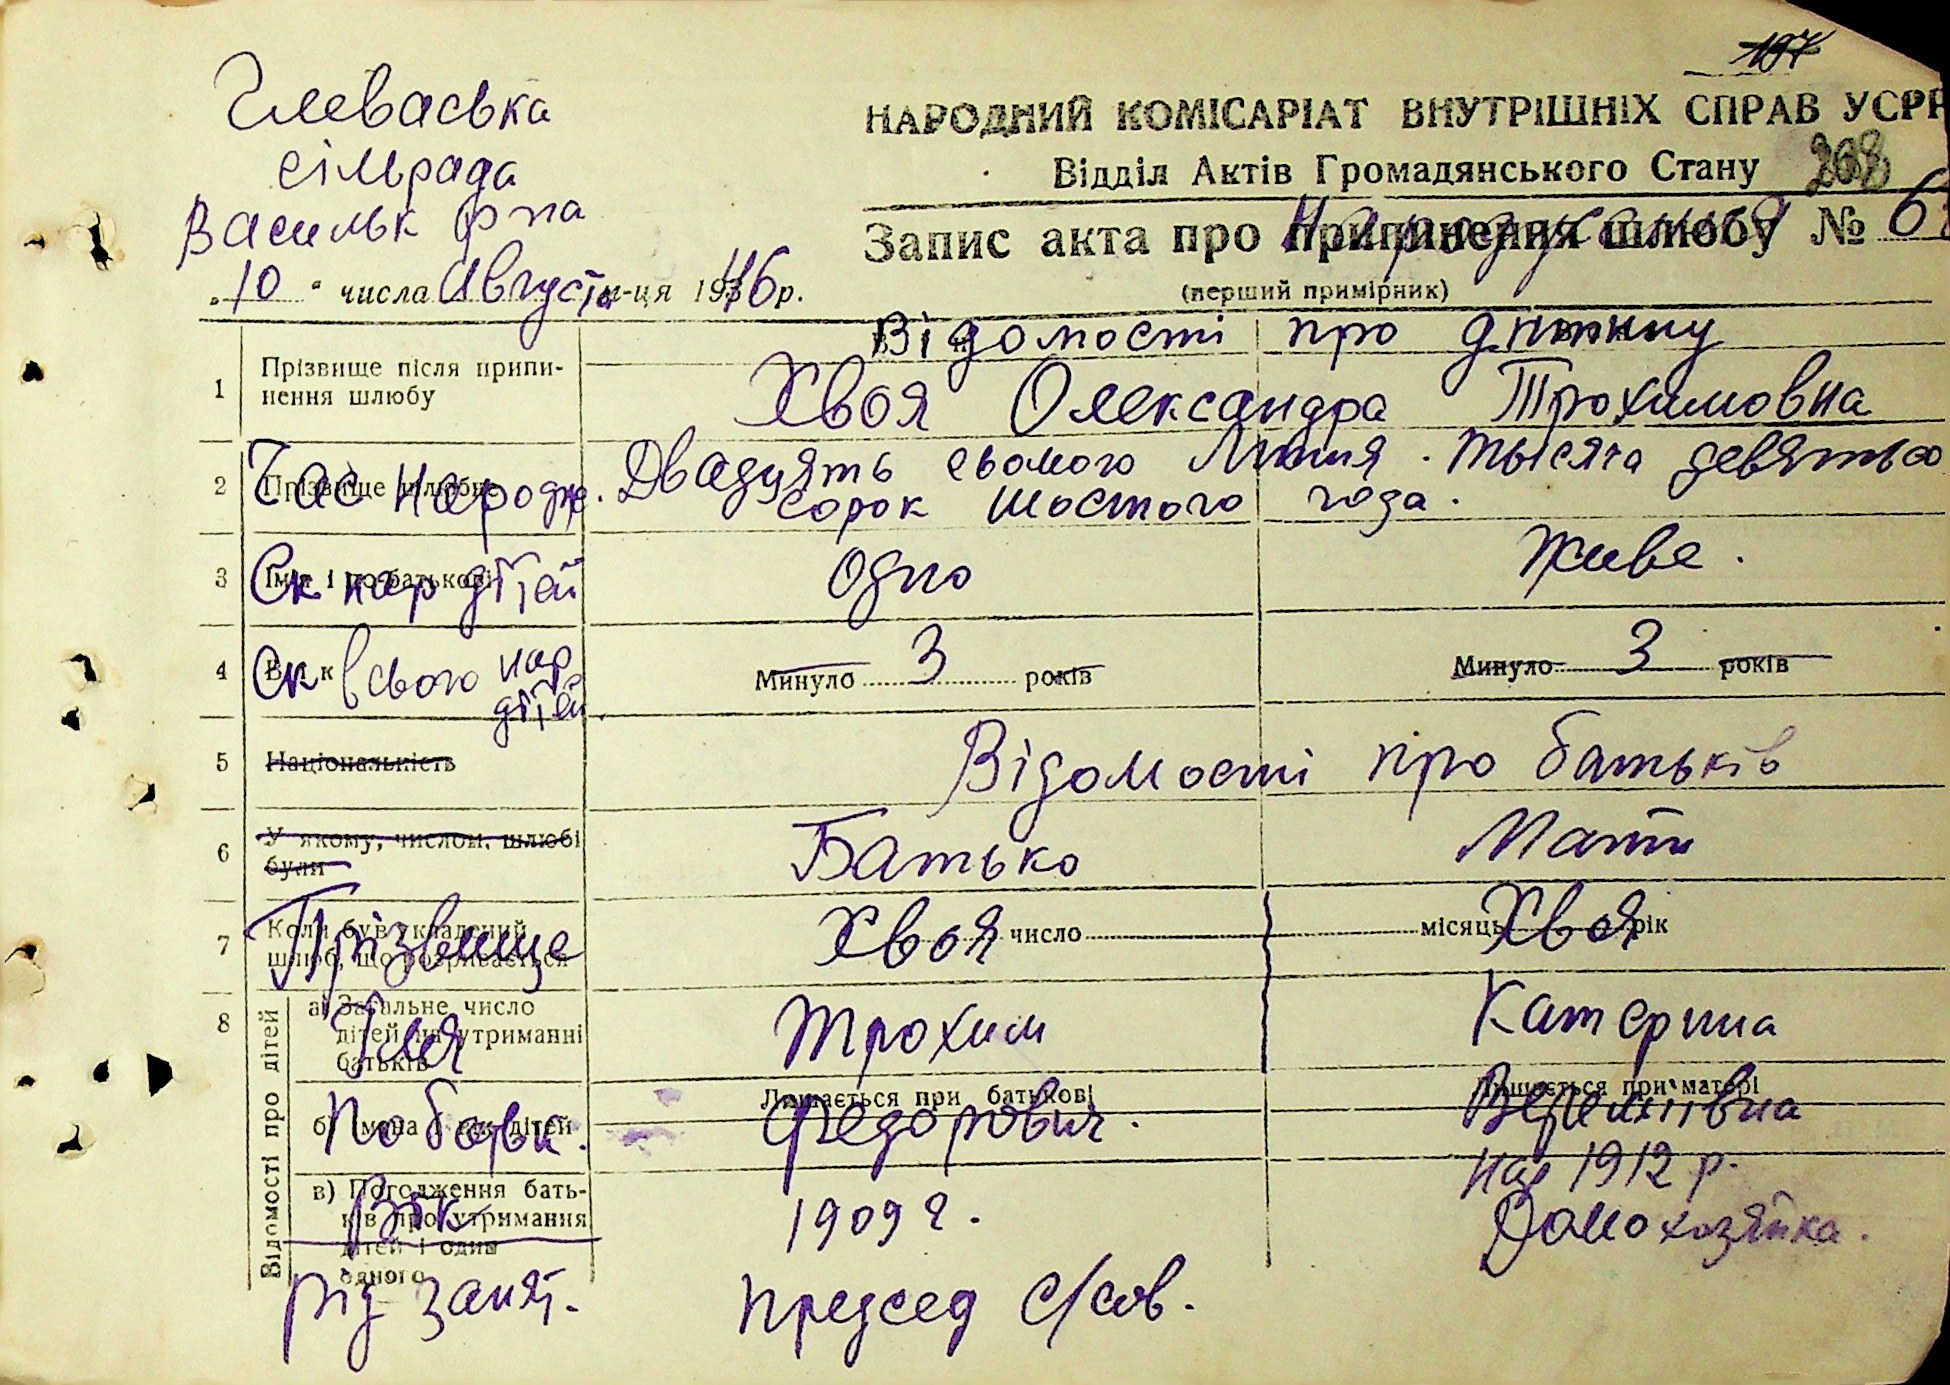 197
Глеваська
сільрада
Васильк р-на
„10“ числа Августа м-ця 1946 р.
НАРОДНИЙ КОМІСАРІАТ ВНУТРІШНІХ СПРАВ УСРР
Відділ Актів Громадянського Стану 208
Запис акта про припинення шлюбу № 6
(перший примірник)
Відомості про дитину
1 Прізвище після припинення шлюбу Хвоя Олександра Трохимовна
2 Прізвище шлюбне Час народж. Двадцять сьомого Липня. тысяча девятьсо
сорок шостого года.
3 Імя і по батькові Ск нар дітей одно Живе.
4 Вік Ск всього нар дітей. Минуло 3 років Минуло 3 років
5 Національність Відомості про батьків
6 У якому, числом, шлюбі були Батько Мати
7 Коли був укладений шлюб, що розривається Прізвище Хвоя число місяць Хвоя рік
8 Відомості про дітей
а) Загальне число дітей на утриманні батьків Імя Трохим Катерина
Лишається при батькові Лишається при матері
б) Імена і вік дітей По батьк. Федорович. Вереміївна
нар 1912 р.
в) Погодження батьків про утримання дітей і один одного Вік 1909 г. Домохозяйка.
Рід занят. Председ с/сов.